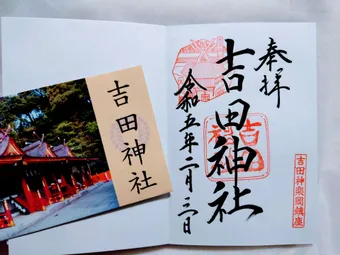 奉拝
吉田神社
令和五年二月三日
吉田神楽岡鎮座
吉田神社